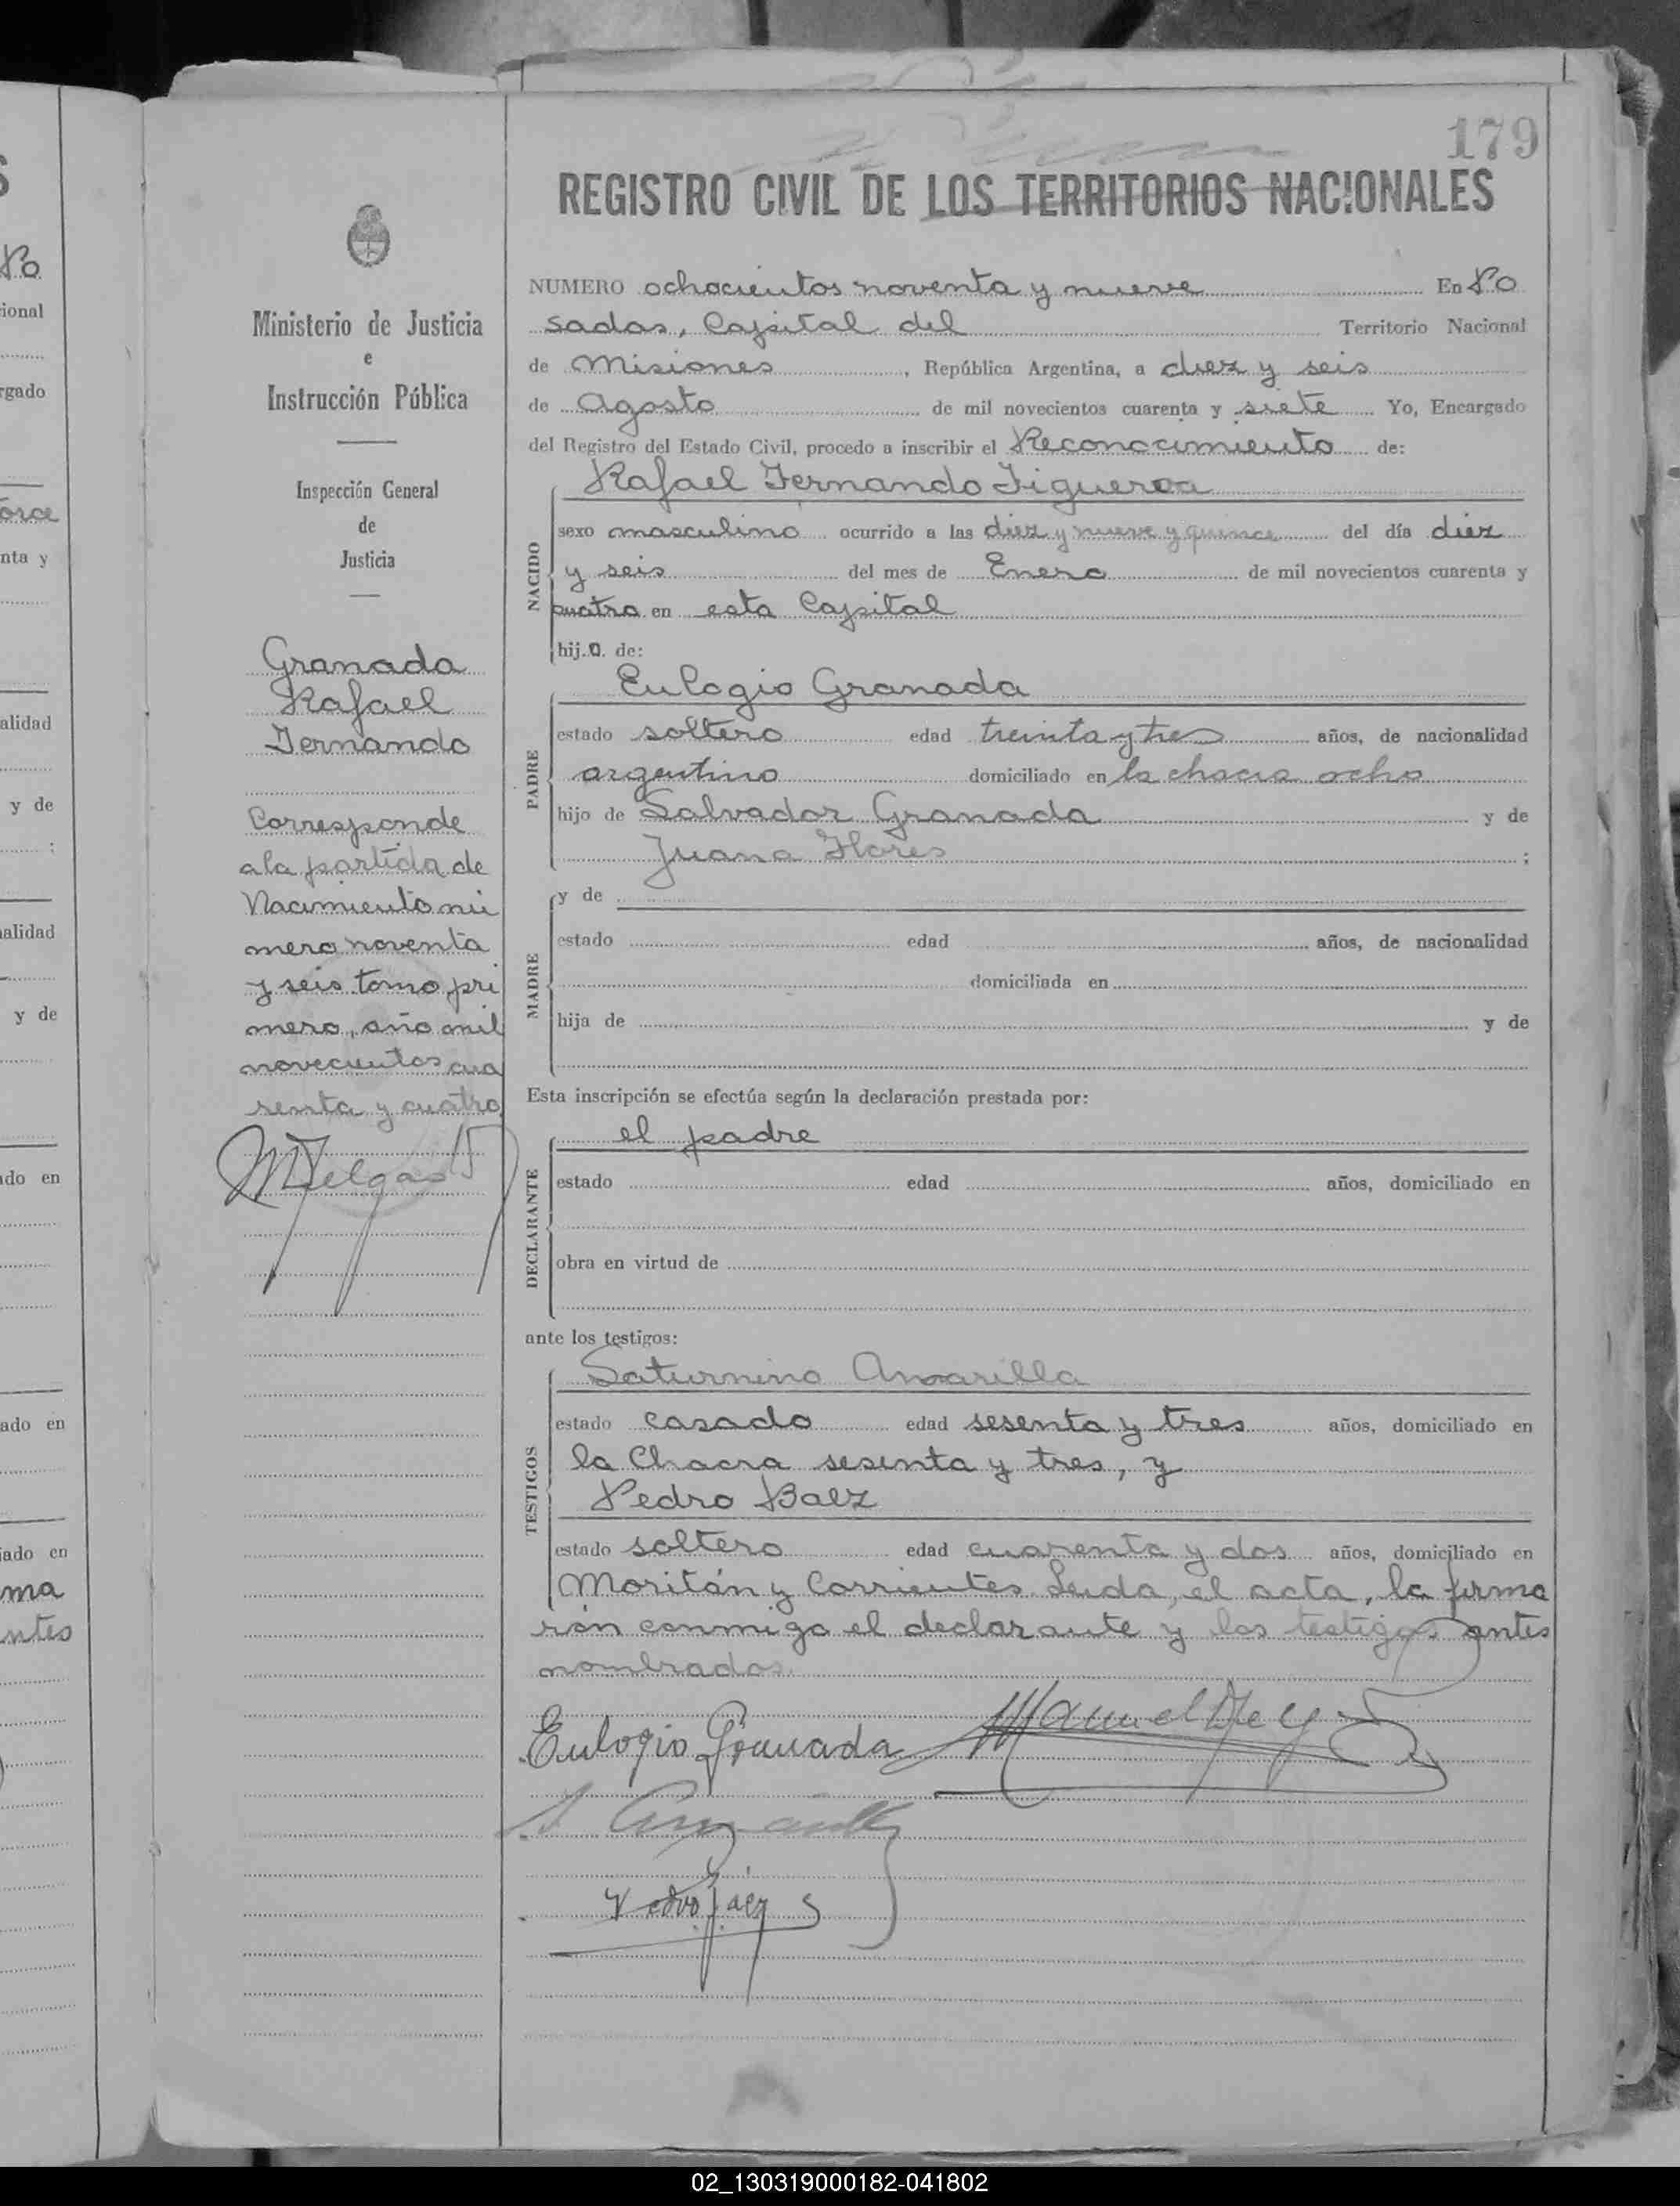 179
REGISTRO CIVIL DE LOS TERRITORIOS NACIONALES
NUMERO ochocientos noventa y nueve En Po
sadas, Capital del Territorio Nacional
de Misiones, República Argentina, a diez y seis
de Agosto de mil novecientos cuarenta y siete Yo, Encargado
del Registro del Estado Civil, procedo a inscribir el Reconocimiento de:
NACIDO
Rafael Fernando Figueroa
sexo masculino ocurrido a las diez y nueve y quince del día diez
y seis del mes de Enero de mil novecientos cuarenta y
cuatro en esta Capital
hijo de:
PADRE
Eulogio Granada
estado soltero edad treinta y tres años, de nacionalidad
argentino domiciliado en la chacra ocho
hijo de Salvador Granada y de
Juana Flores ;
MADRE
y de
estado edad años, de nacionalidad
domiciliada en
hija de y de
Esta inscripción se efectúa según la declaración prestada por:
DECLARANTE
el padre
estado edad años, domiciliado en
obra en virtud de
ante los testigos:
TESTIGOS
Saturnino Amarilla
estado casado edad sesenta y tres años, domiciliado en
la Chacra sesenta y tres, y
Pedro Baez
estado soltero edad cuarenta y dos años, domiciliado en
Moritán y Corrientes. Leida, el acta, la firma
rón conmigo el declarante y los testigos antes
nombrados.
Eulogio Granada
Pedro Baez
Ministerio de Justicia
e
Instrucción Pública
Inspección General
de
Justicia
Granada
Rafael
Fernando
Corresponde
a la partida de
Nacimiento nú
mero noventa
y seis tomo pri
mero, año mil
novecientos cua
renta y cuatro
Po
ional
rgado
orce
nta y
alidad
y de
;
alidad
y de
ado en
ado en
iado en
ma
ntes
02_130319000182-041802